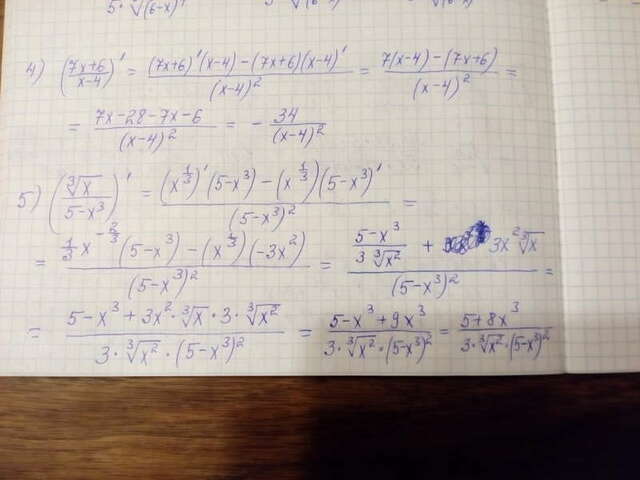 5·∛(6-x)
4) ((7x+6)/(x-4))' = ((7x+6)'(x-4)-(7x+6)(x-4)')/(x-4)² = (7(x-4)-(7x+6))/(x-4)² =
= (7x-28-7x-6)/(x-4)² = - 34/(x-4)²
5) (∛x/(5-x³))' = ((x^(1/3))'(5-x³)-(x^(1/3))(5-x³)')/(5-x³)² =
= (1/3 x^(-2/3)(5-x³)-(x^(1/3))(-3x²))/(5-x³)² = ((5-x³)/(3∛x²) + 3x²∛x)/(5-x³)² =
= (5-x³+3x²·∛x·3·∛x²)/(3·∛x²·(5-x³)²) = (5-x³+9x³)/(3·∛x²·(5-x³)²) = (5+8x³)/(3·∛x²·(5-x³)²)